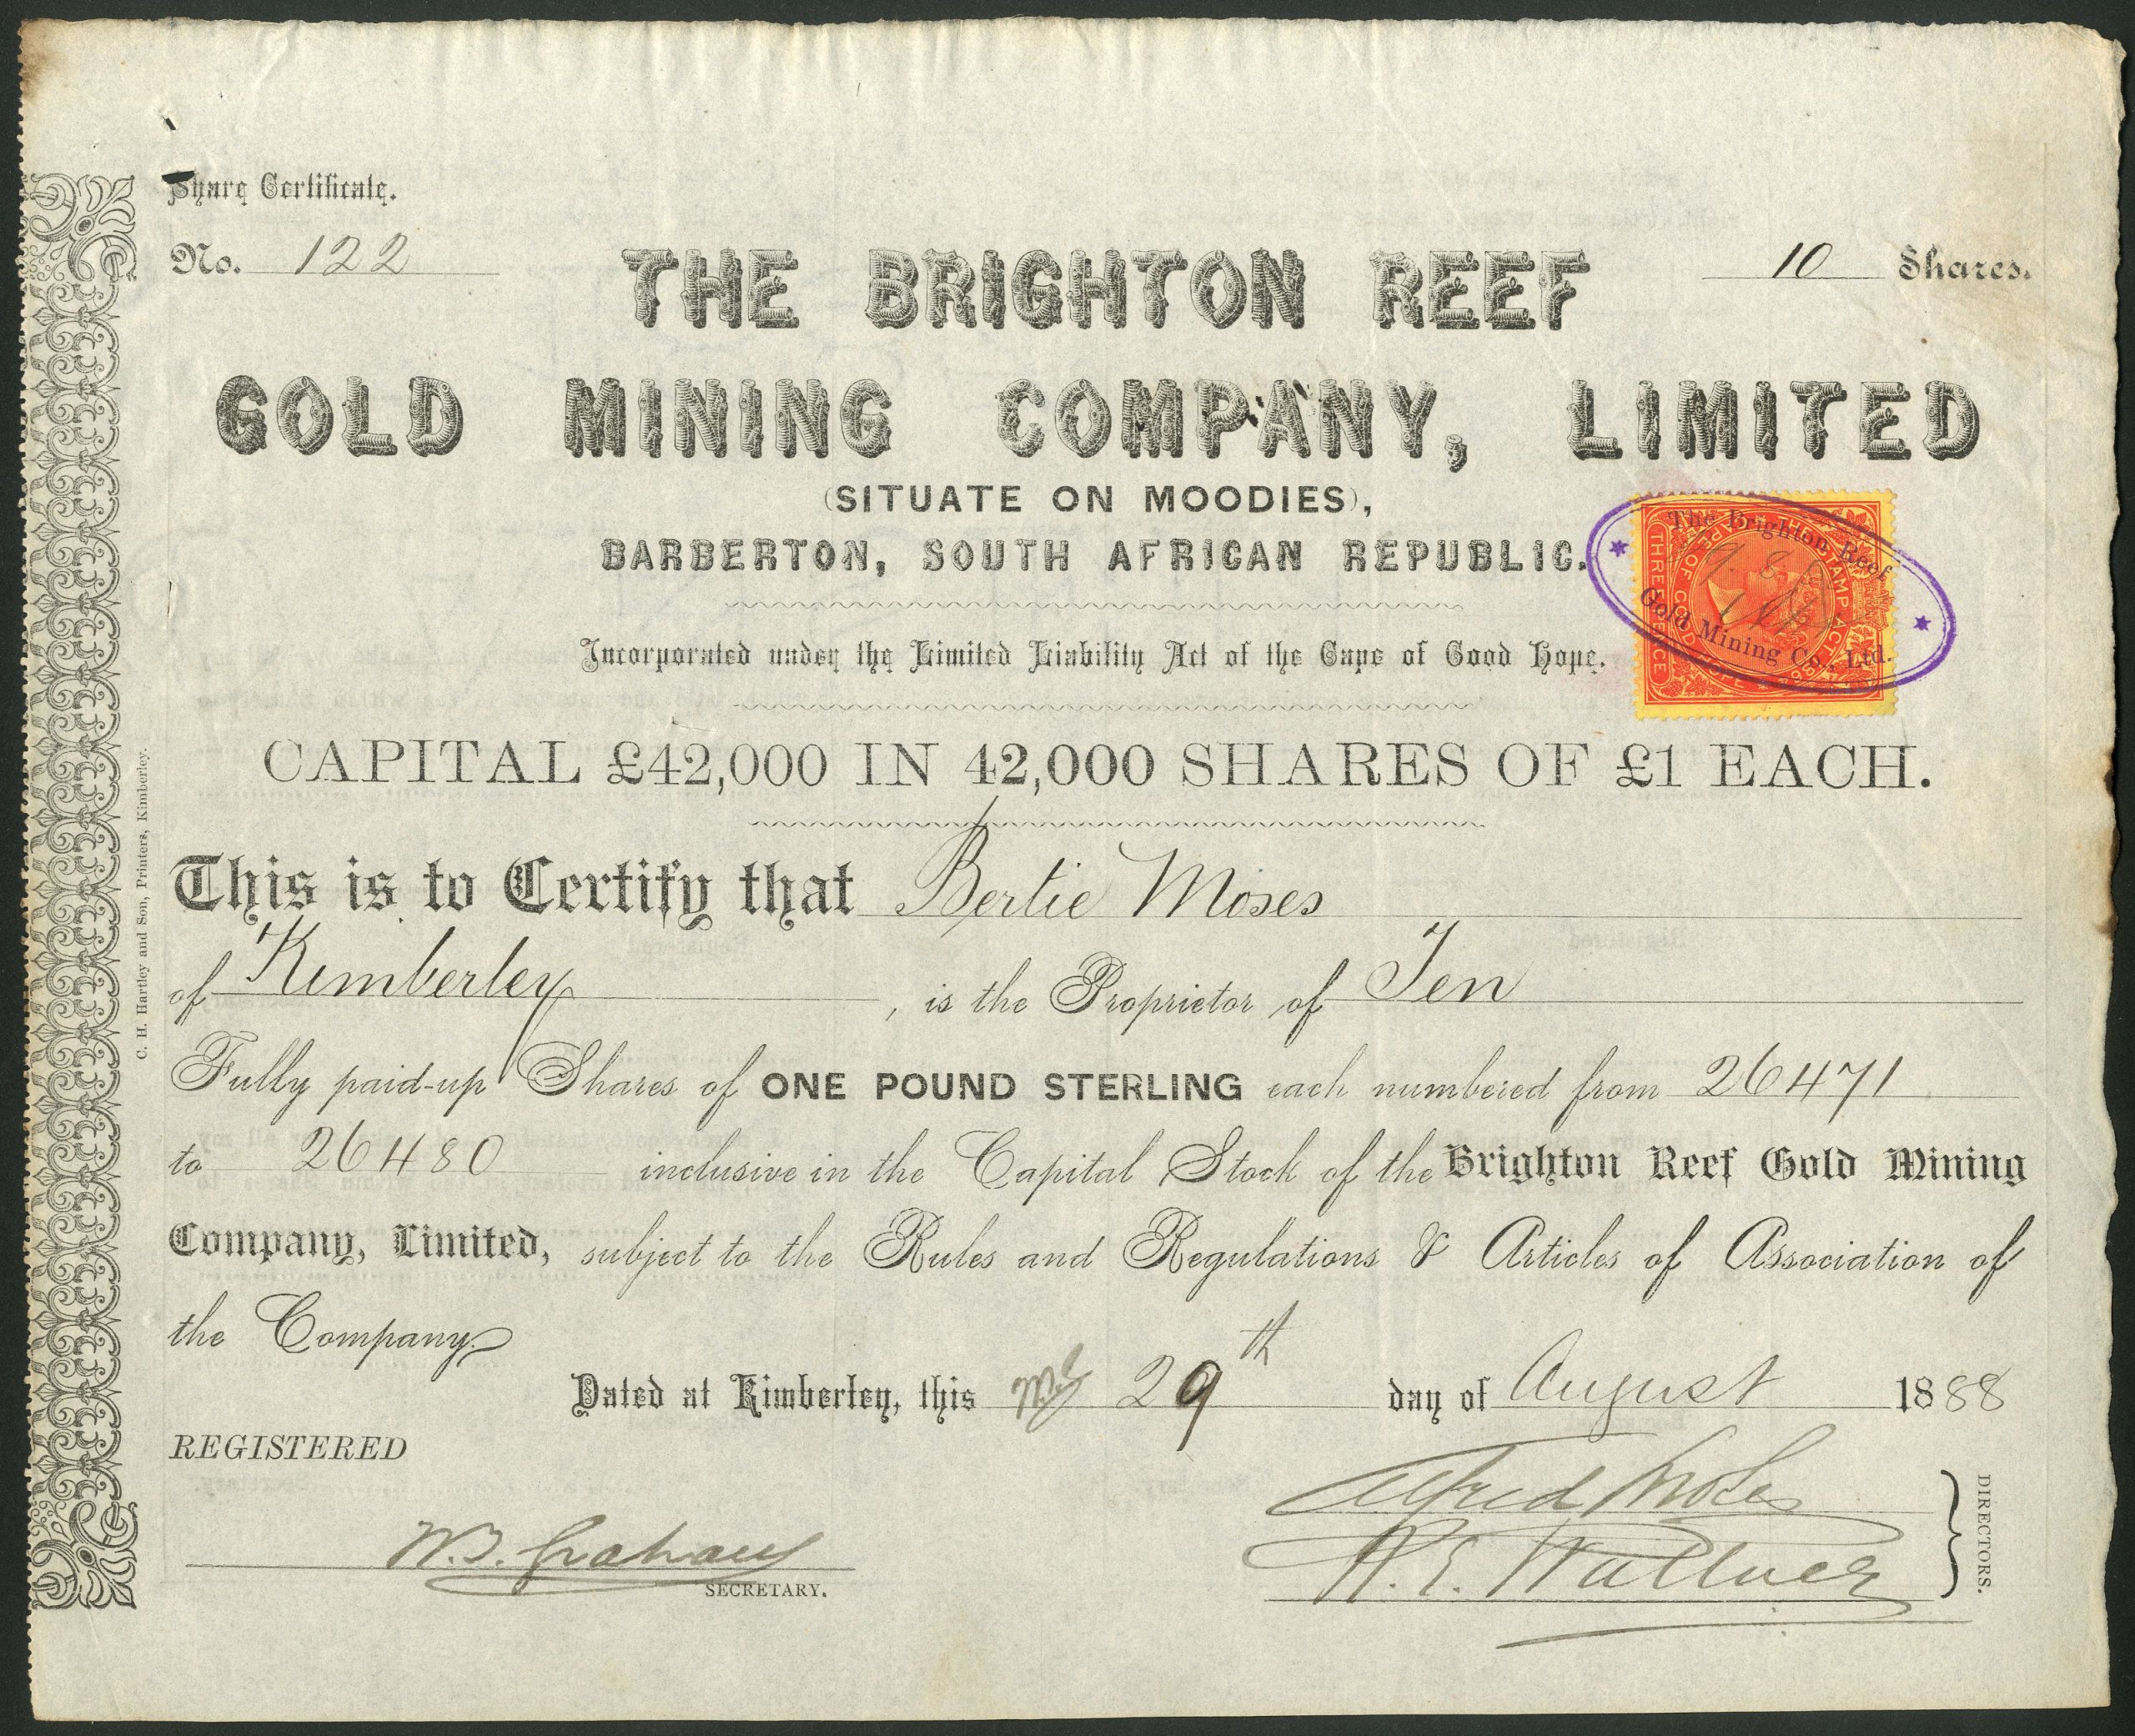 Share Certificate.
No. 122
10 Shares.
THE BRIGHTON REEF
GOLD MINING COMPANY, LIMITED
(SITUATE ON MOODIES),
BARBERTON, SOUTH AFRICAN REPUBLIC.
The Brighton Reef
Gold Mining Co., Ltd.
STAMP ACT
THREE PENCE
Incorporated under the Limited Liability Act of the Cape of Good Hope.
CAPITAL £42,000 IN 42,000 SHARES OF £1 EACH.
This is to Certify that Bertie Moses
of Kimberley, is the Proprietor of Ten
Fully paid-up Shares of ONE POUND STERLING each numbered from 26471
to 26480 inclusive in the Capital Stock of the Brighton Reef Gold Mining
Company, Limited, subject to the Rules and Regulations & Articles of Association of
the Company.
Dated at Kimberley, this 29th day of August 1888
REGISTERED
Alfred Moses
W. E. Wallner
DIRECTORS.
W.S. Graham
SECRETARY.
C. H. Hartley and Son, Printers, Kimberley.